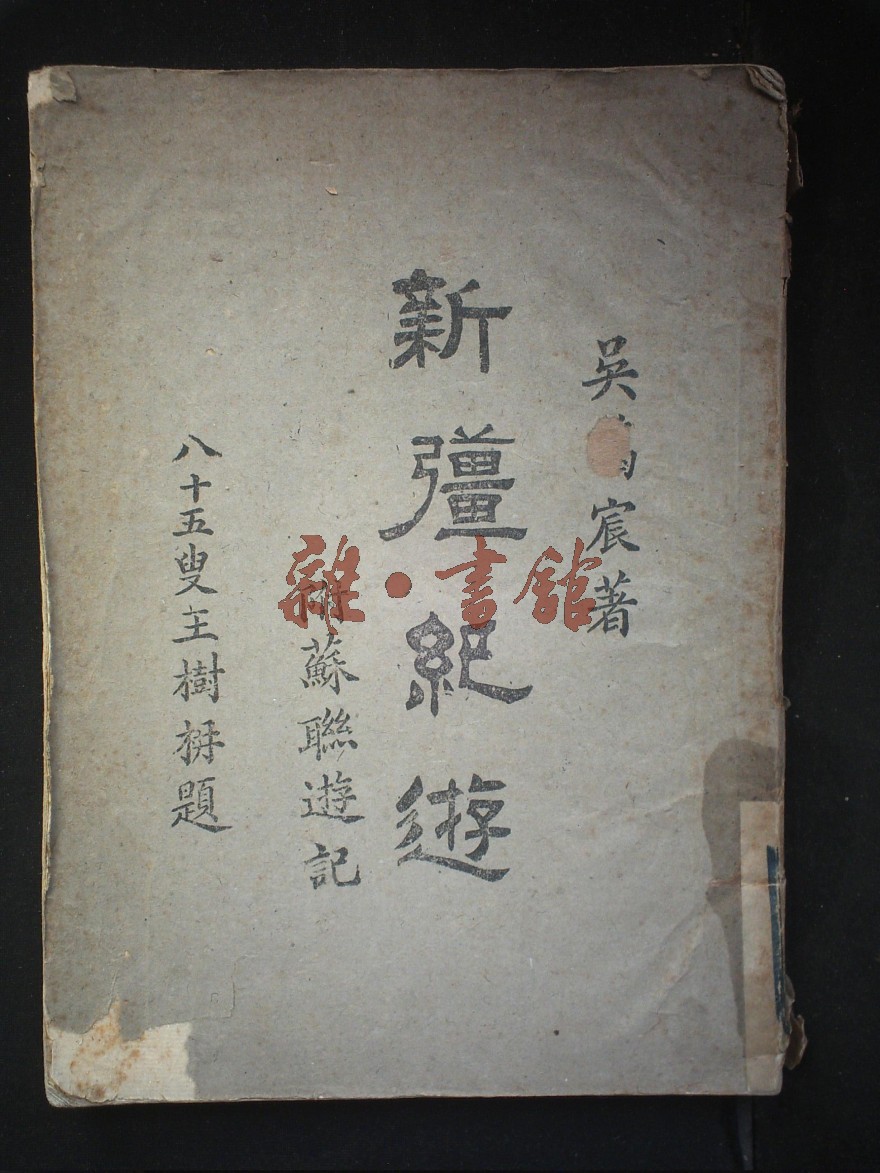 吳宸著
新彊紀遊
附蘇聯遊記
八十五叟王樹枏題
雜·書館